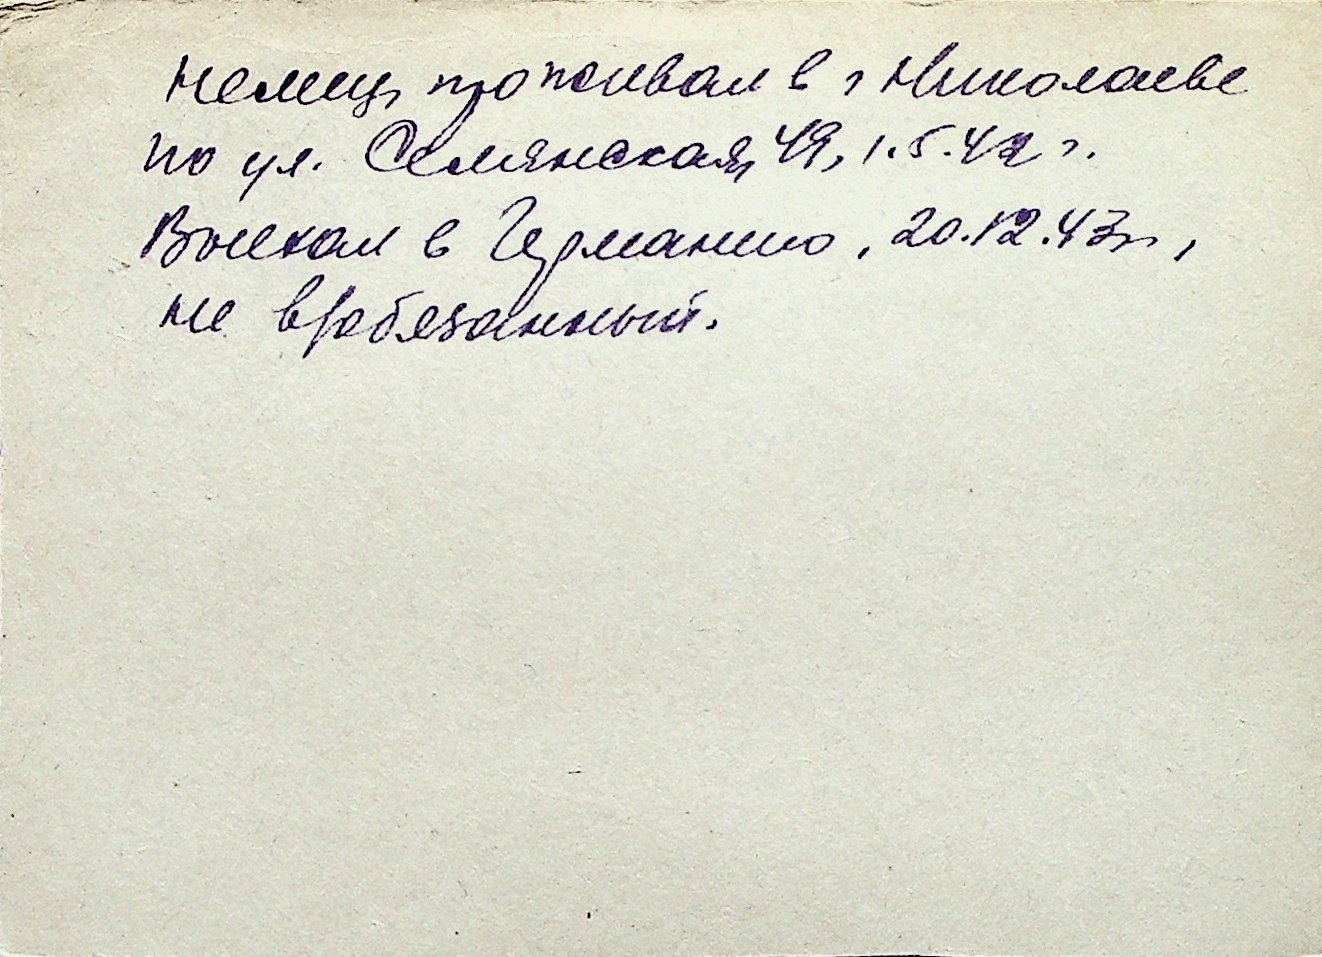 немец, проживал в г Николаеве
по ул. Семянская, 49, 1.5.42 г.
Выехал в Германию, 20.12.43 г,
не в/обязанный.